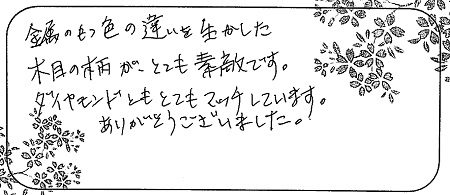 金属のもつ色の違いを生かした
木目の柄が、とても素敵です。
ダイヤモンドともとてもマッチしています。
ありがとうございました。